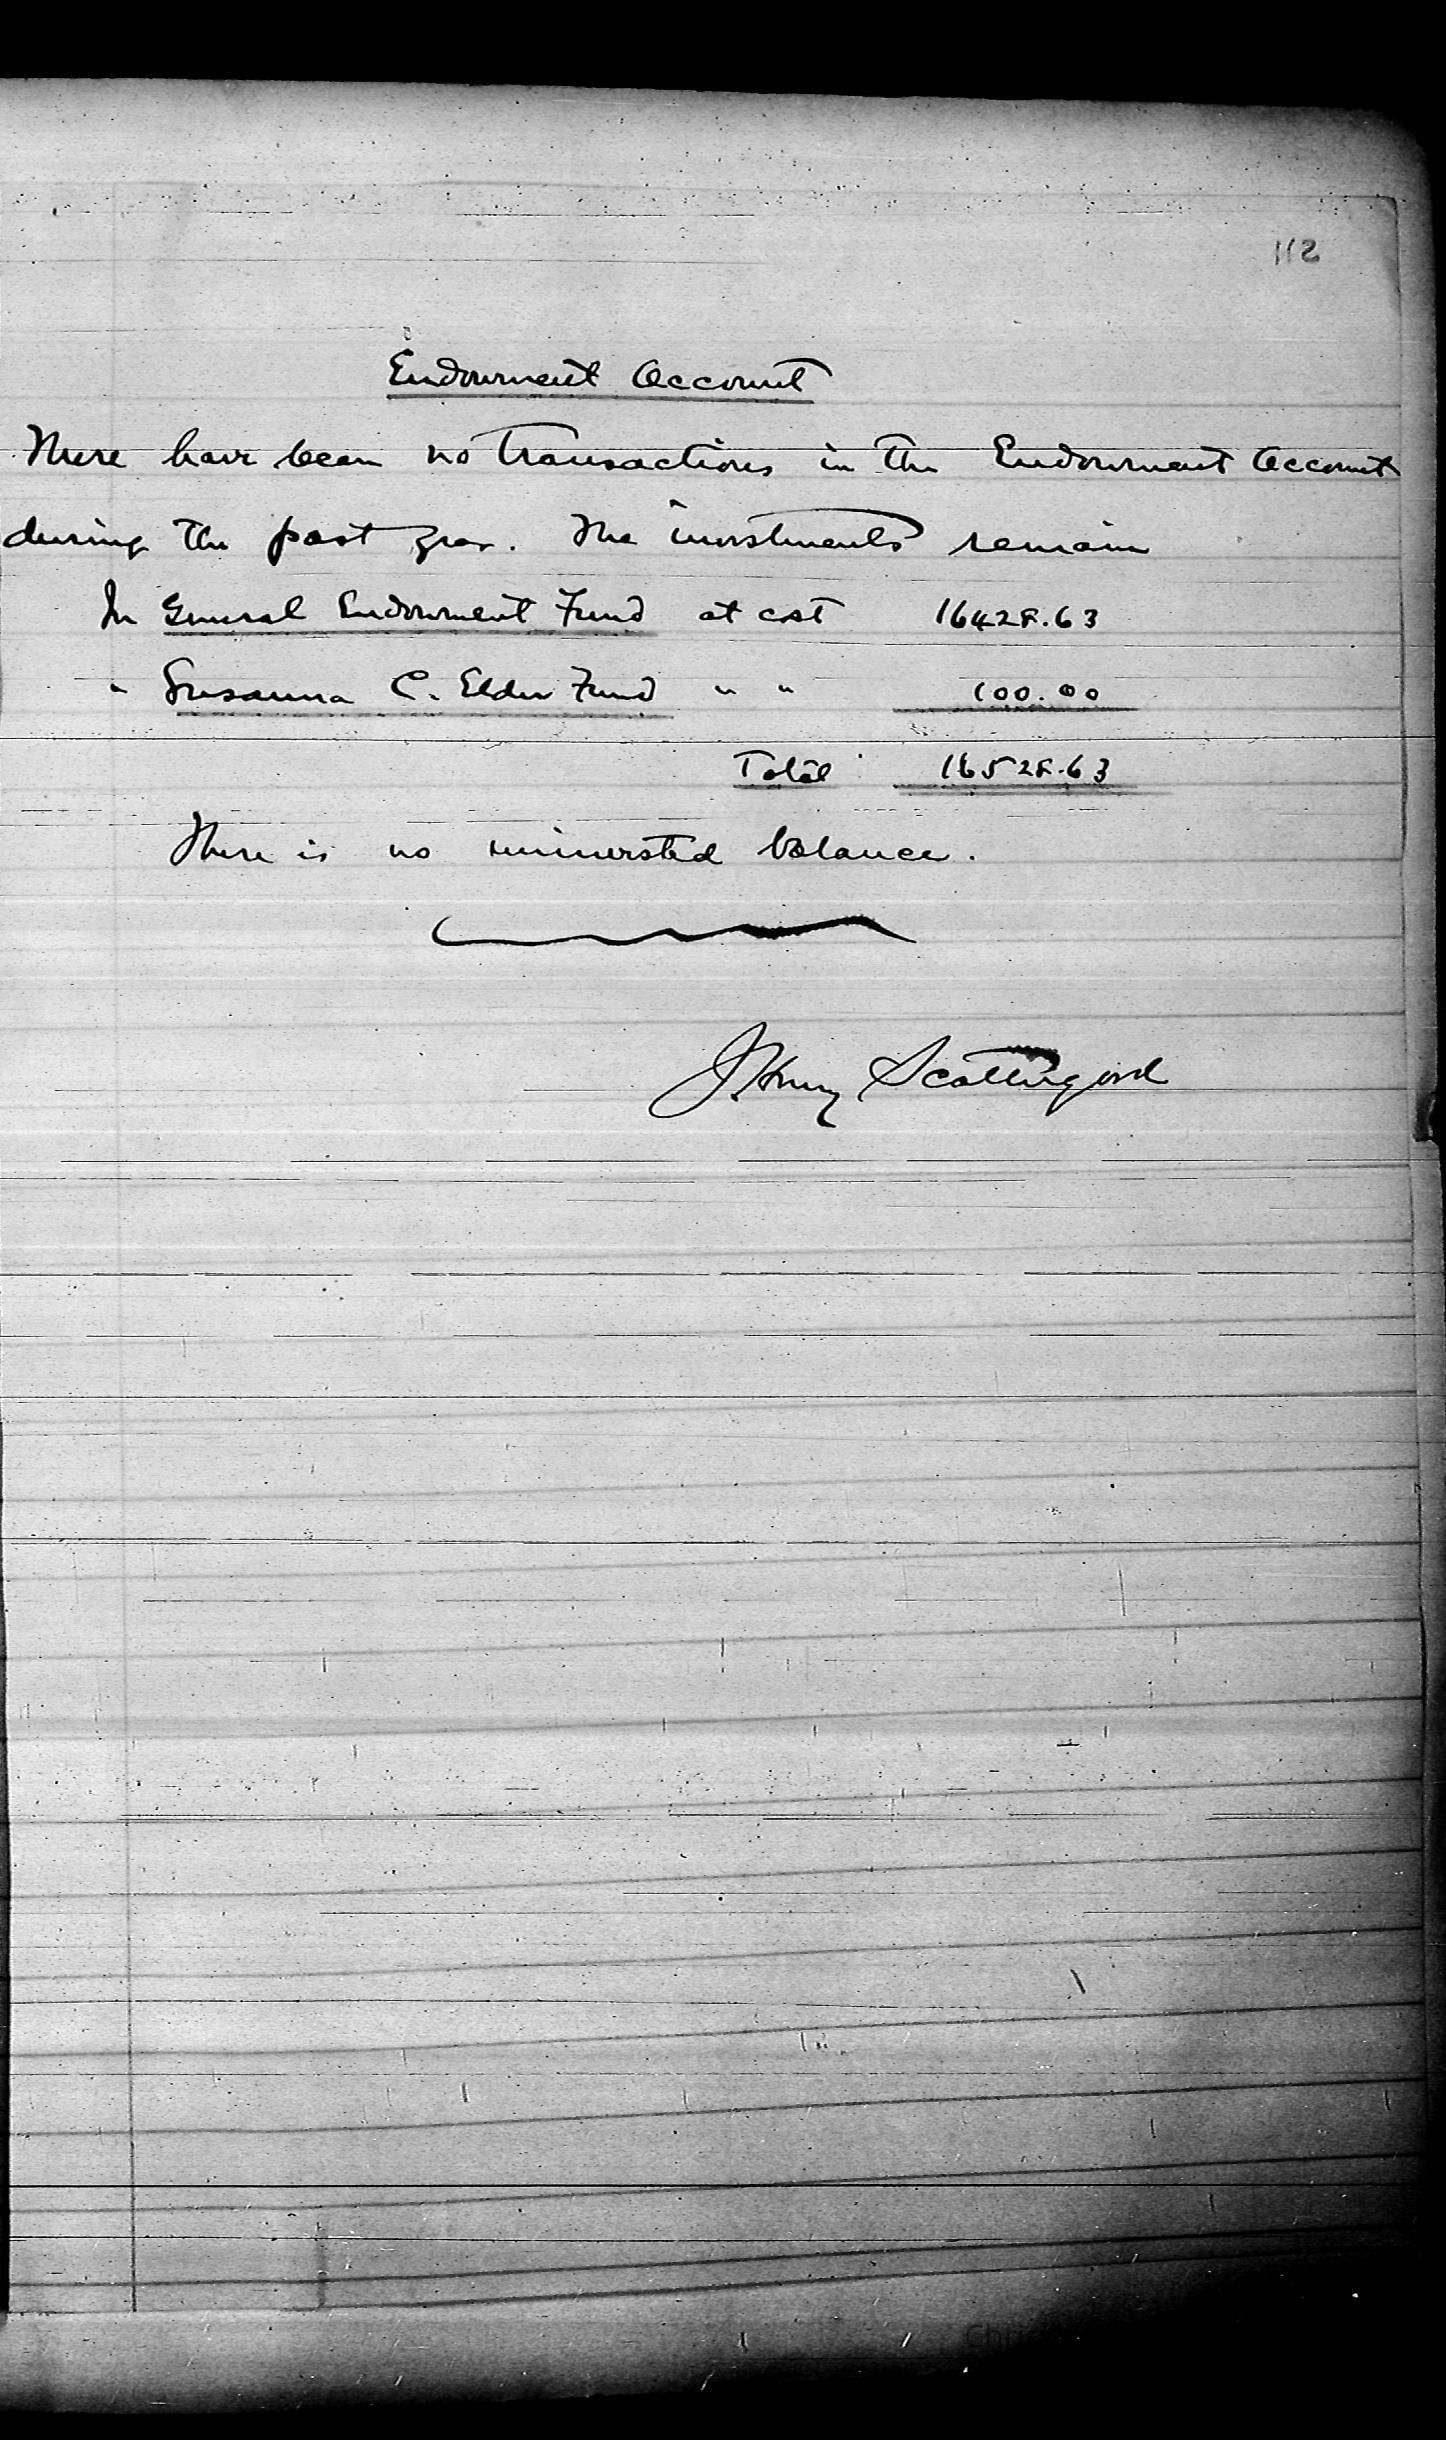 112
Endowment Account
There have been no transactions in the Endowment Account
during the past year. The investments remain
In General Endowment Fund at cost 16428.63
" Susanna C. Elder Fund " " 100.00
Total 16528.63
There is no uninvested balance.
J. Henry Scattergood